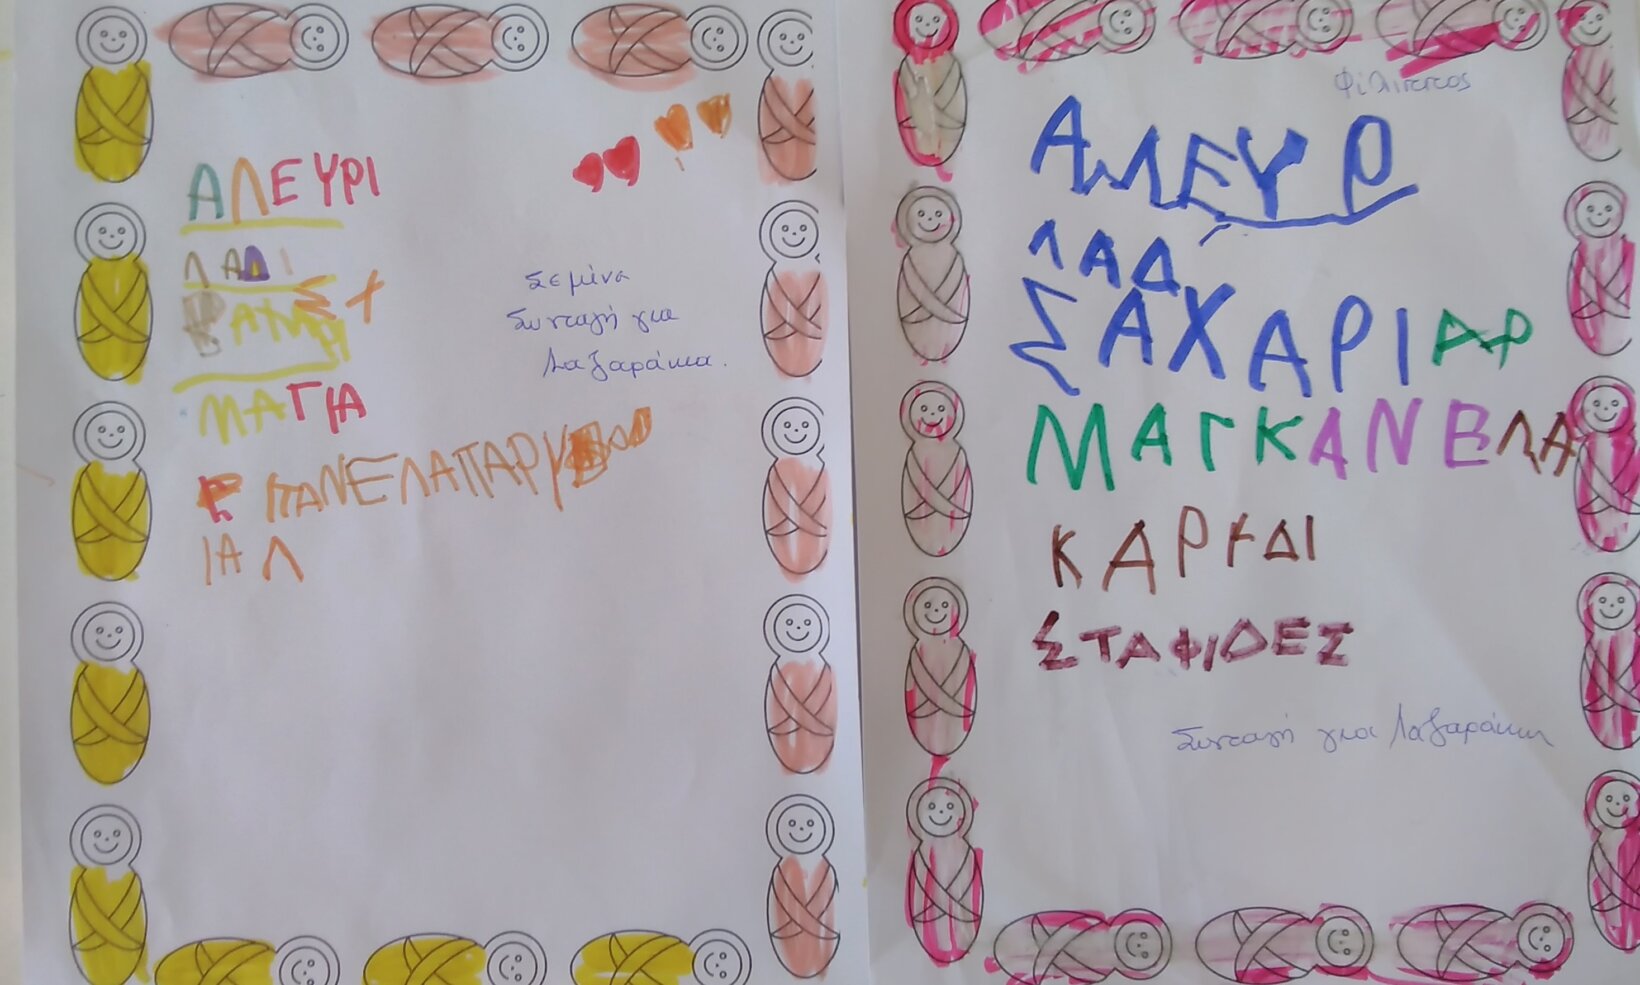 ΑΛΕΥΡΙ
ΛΑΔΙ
ΜΑΓΙΑ
ΠΑΝΕΛΑΠΑΡΥ
ΙΑ Λ
Σεμίνα
Συνταγή για
Λαζαράκια.
Φίλιππος
ΑΛΕΥΡ
ΛΑΔ
ΣΑΧΑΡΙΑΡ
ΜΑΓΚΑΝΕΛΑ
ΚΑΡΥΔΙ
ΣΤΑΦΙΔΕΣ
Συνταγή για Λαζαράκια